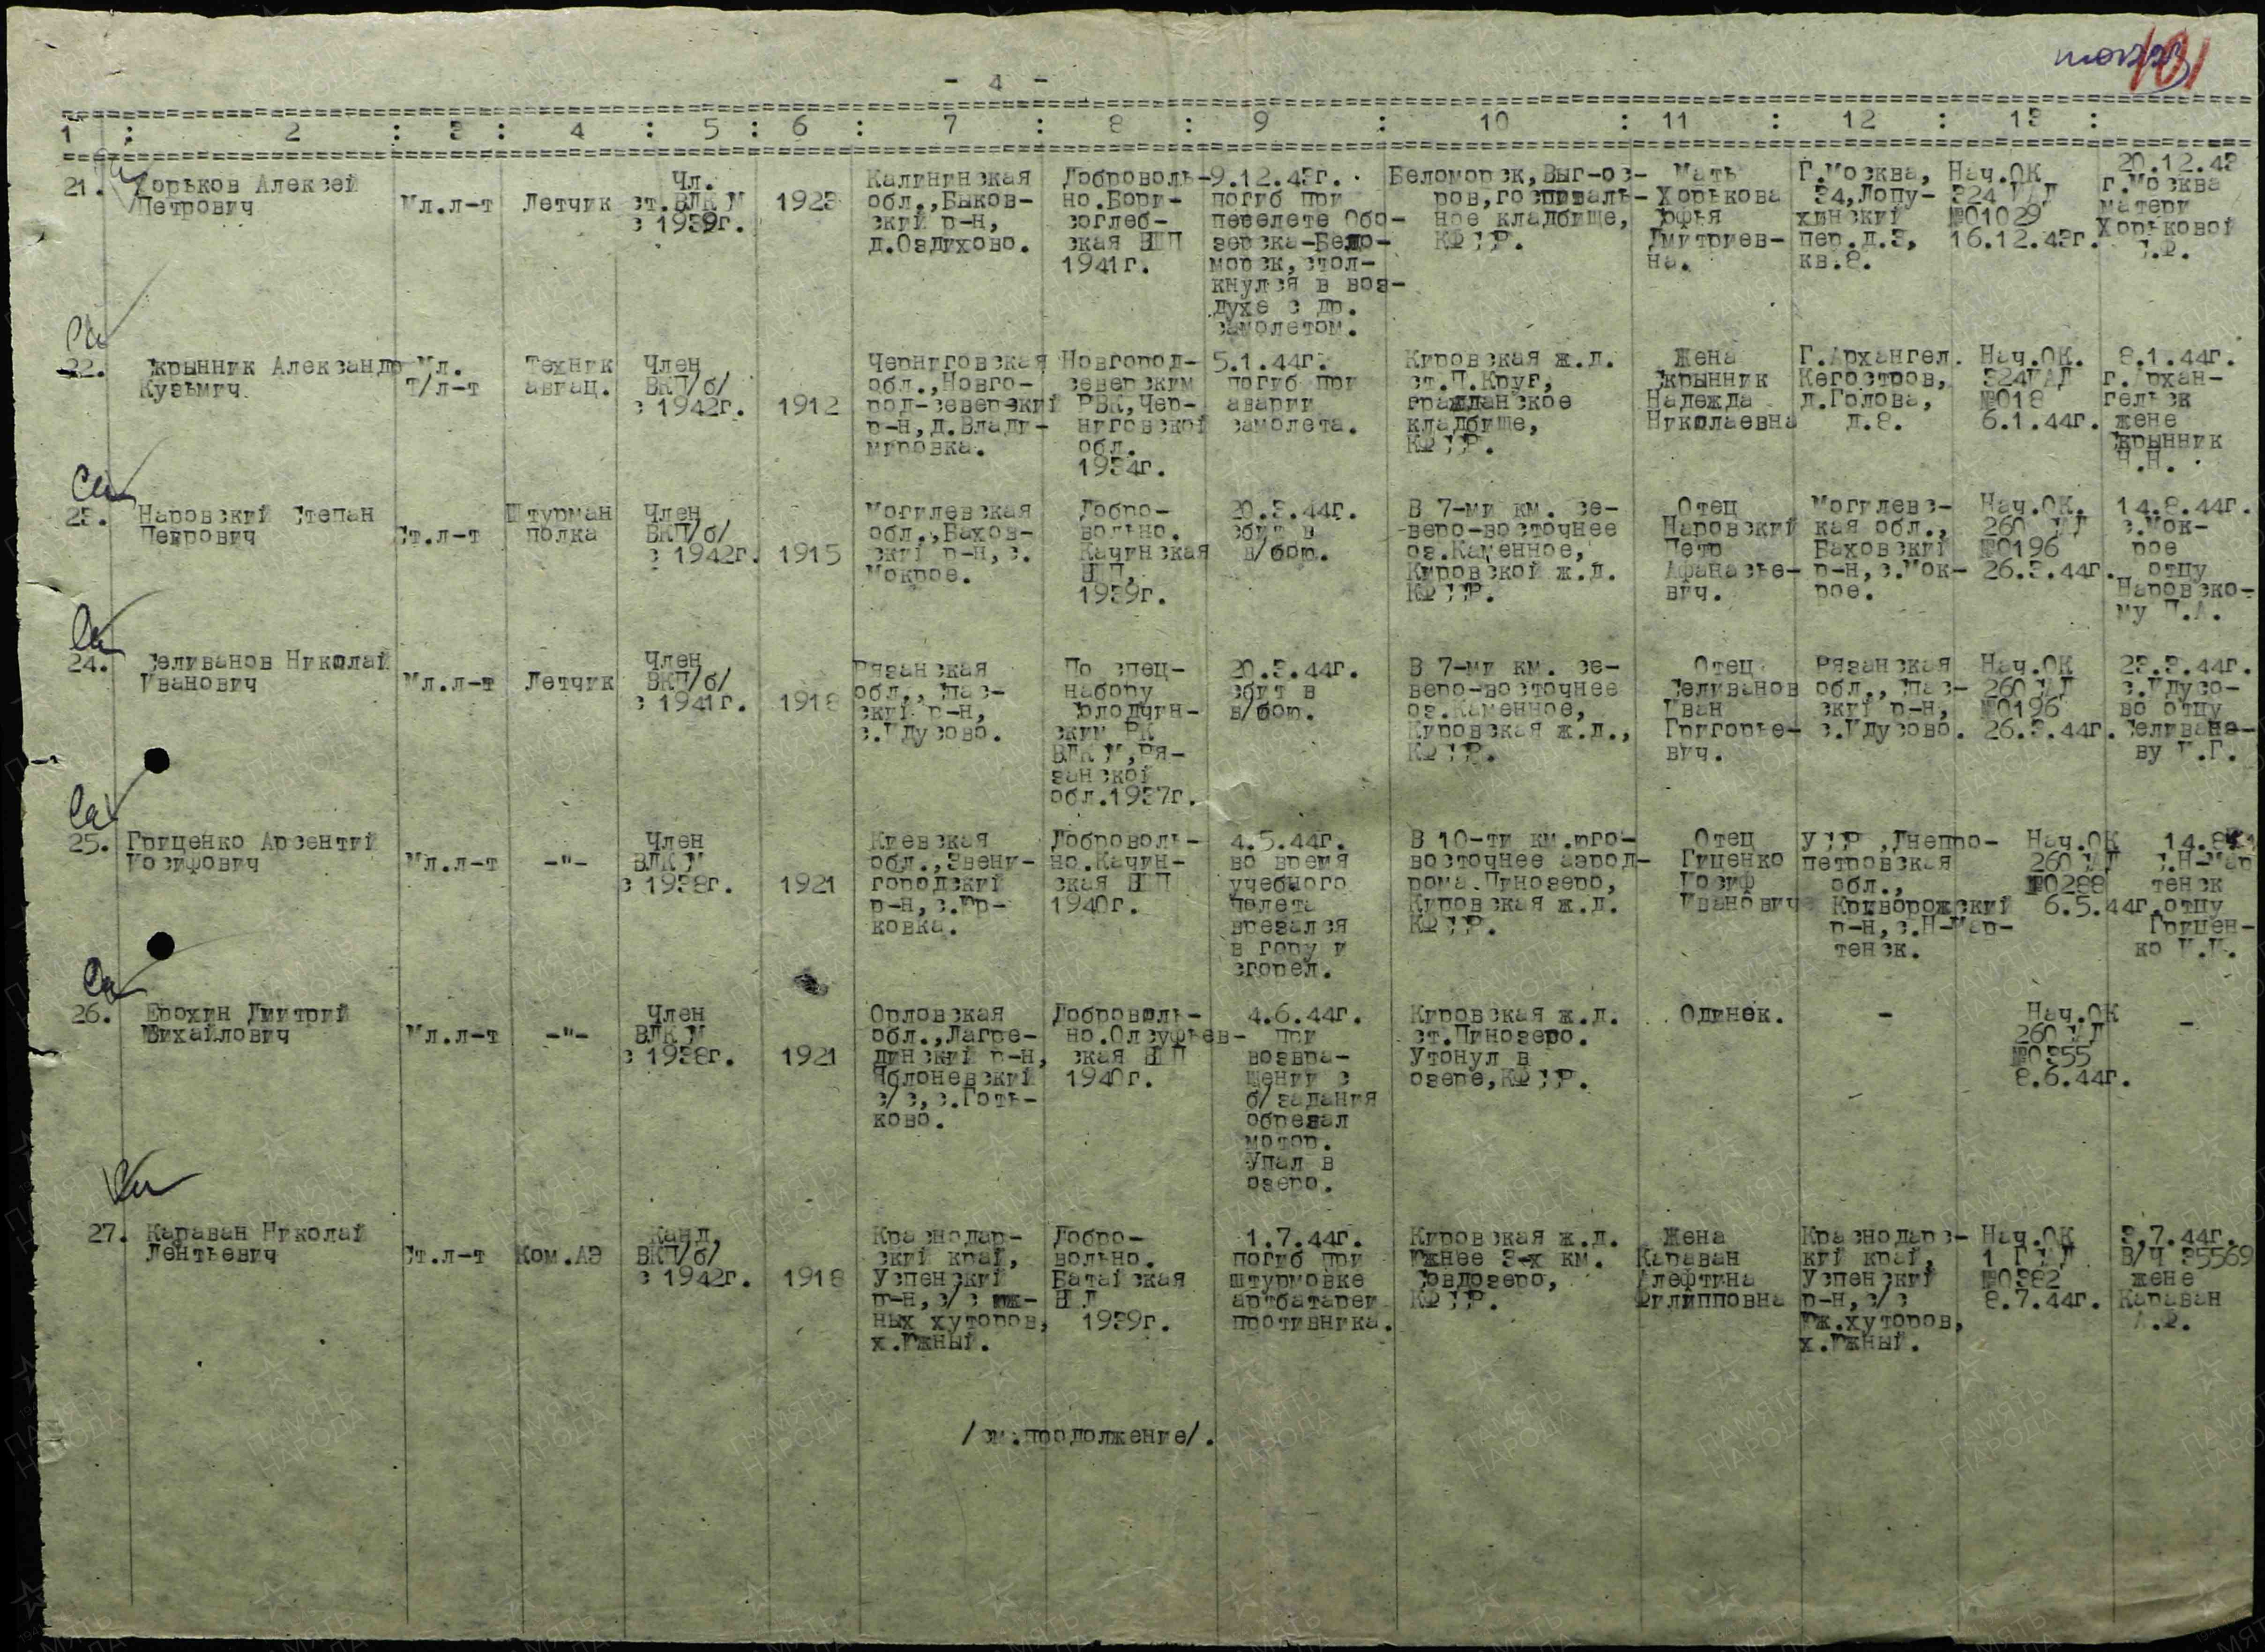 - 4 -
1 : 2 : 3 : 4 : 5 : 6 : 7 : 8 : 9 : 10 : 11 : 12 : 13 :
21. Хорьков Алексей
Петрович
Мл.л-т
Летчик
Чл.
ст.ВЛКСМ
с 1939г.
1923
Калининская
обл.,Быков-
ский р-н,
д.Оздихово.
Доброволь-
но.Бори-
соглеб-
ская ВШП
1941г.
9.12.43г.
погиб при
перелете Обо-
зерска-Бело-
морск,стол-
кнулся в воз-
духе с др.
самолетом.
Беломорск,Выг-ос-
ров,госпиталь-
ное кладбище,
КФССР.
Мать
Хорькова
Софья
Дмитриев-
на.
Г.Москва,
34,Лопу-
хинский
пер.д.3,
кв.8.
Нач.ОК
324 ИАД
№01029
16.12.43г.
20.12.43
г.Москва
матери
Хорьковой
С.Ф.
22. Скрынник Александр
Кузьмич.
Мл.
Т/л-т
Техник
авиац.
Член
ВКП/б/
с 1942г.
1912
Черниговская
обл.,Новго-
род-северский
р-н,д.Влади-
мировка.
Новгород-
северским
РВК,Чер-
ниговской
обл.
1934г.
5.1.44г.
погиб при
аварии
самолета.
Кировская ж.д.
ст.П.Круг,
гражданское
кладбище,
КФССР.
Жена
Скрынник
Надежда
Николаевна
Г.Архангел.
Кегостров,
д.Голова,
д.8.
Нач.ОК.
324ИАД
№018
6.1.44г.
8.1.44г.
г.Архан-
гельск
жене
Скрынник
Н.Н.
23. Наровский Степан
Петрович
Ст.л-т
Штурман
полка
Член
ВКП/б/
с 1942г.
1915
Могилевская
обл.,Бахов-
ский р-н,с.
Мокрое.
Добро-
вольно.
Качинская
ВШП,
1939г.
20.3.44г.
сбит в
в/бою.
В 7-ми км. се-
веро-восточнее
оз.Каменное,
Кировской ж.д.
КФССР.
Отец
Наровский
Петр
Афанасье-
вич.
Могилевс-
кая обл.,
Баховский
р-н,с.Мок-
рое.
Нач.ОК.
260 САД
№0196
26.3.44г.
14.8.44г.
с.Мок-
рое
отцу
Наровско-
му П.А.
24. Селиванов Николай
Иванович
Мл.л-т
Летчик
Член
ВКП/б/
с 1941г.
1918
Рязанская
обл.,Спас-
ский р-н,
с.Идусово.
По спец-
набору
Солодчин-
ским РК
ВЛКСМ,Ря-
занской
обл.1937г.
20.3.44г.
сбит в
в/бою.
В 7-ми км. се-
веро-восточнее
оз.Каменное,
Кировская ж.д.,
КФССР.
Отец
Селиванов
Иван
Григорье-
вич.
Рязанская
обл.,Спас-
ский р-н,
с.Идусово.
Нач.ОК
260 САД
№0196
26.3.44г.
23.3.44г.
с.Идусо-
во отцу
Селивано-
ву И.Г.
25. Гриценко Арсентий
Иосифович
Мл.л-т
-"-
Член
ВЛКСМ
с 1938г.
1921
Киевская
обл.,Звени-
городский
р-н,с.Юр-
ковка.
Доброволь-
но.Качин-
ская ВШП
1940г.
4.5.44г.
во время
учебного
полета
врезался
в гору и
сгорел.
В 10-ти км.юго-
восточнее аэрод-
рома.Пинозеро,
Кировская ж.д.
КФССР.
Отец
Гиценко
Иосиф
Иванович
УССР ,Днепро-
петровская
обл.,
Криворожский
р-н,с.Н-Мар-
тенск.
Нач.ОК
260 САД
№0288
6.5.44г.
14.8
с.Н-Мар
тенск
отцу
Грицен-
ко И.И.
26. Ерохин Дмитрий
Михайлович
Мл.л-т
-"-
Член
ВЛКСМ
с 1938г.
1921
Орловская
обл.,Лагре-
динский р-н,
Яблоневский
с/с,с.Готь-
ково.
Доброволь-
но.Олсуфьев-
ская ВШП
1940г.
4.6.44г.
при
возвра-
щении с
б/задания
обрезал
мотор.
Упал в
озеро.
Кировская ж.д.
ст.Пинозеро.
Утонул в
озере,КФССР.
Одинок.
-
Нач.ОК
260 САД
№0355
8.6.44г.
-
27. Караван Николай
Лентьевич
Ст.л-т
Ком.АЭ
Канд.
ВКП/б/
с 1942г.
1918
Краснодар-
ский край,
Успенский
р-н,с/с юж-
ных хуторов,
х.Южный.
Добро-
вольно.
Батайская
ВШЛ
1939г.
1.7.44г.
погиб при
штурмовке
артбатареи
противника.
Кировская ж.д.
Южнее 3-х км.
Ковдозеро,
КФССР.
Жена
Караван
Алефтина
Филипповна
Краснодарс-
кий край,
Успенский
р-н,с/с
Юж.хуторов,
х.Южный.
Нач.ОК
1 ГСАД
№0382
8.7.44г.
3.7.44г.
В/Ч 35569
жене
Караван
А.Ф.
/см.продолжение/.
ПАМЯТЬ
НАРОДА